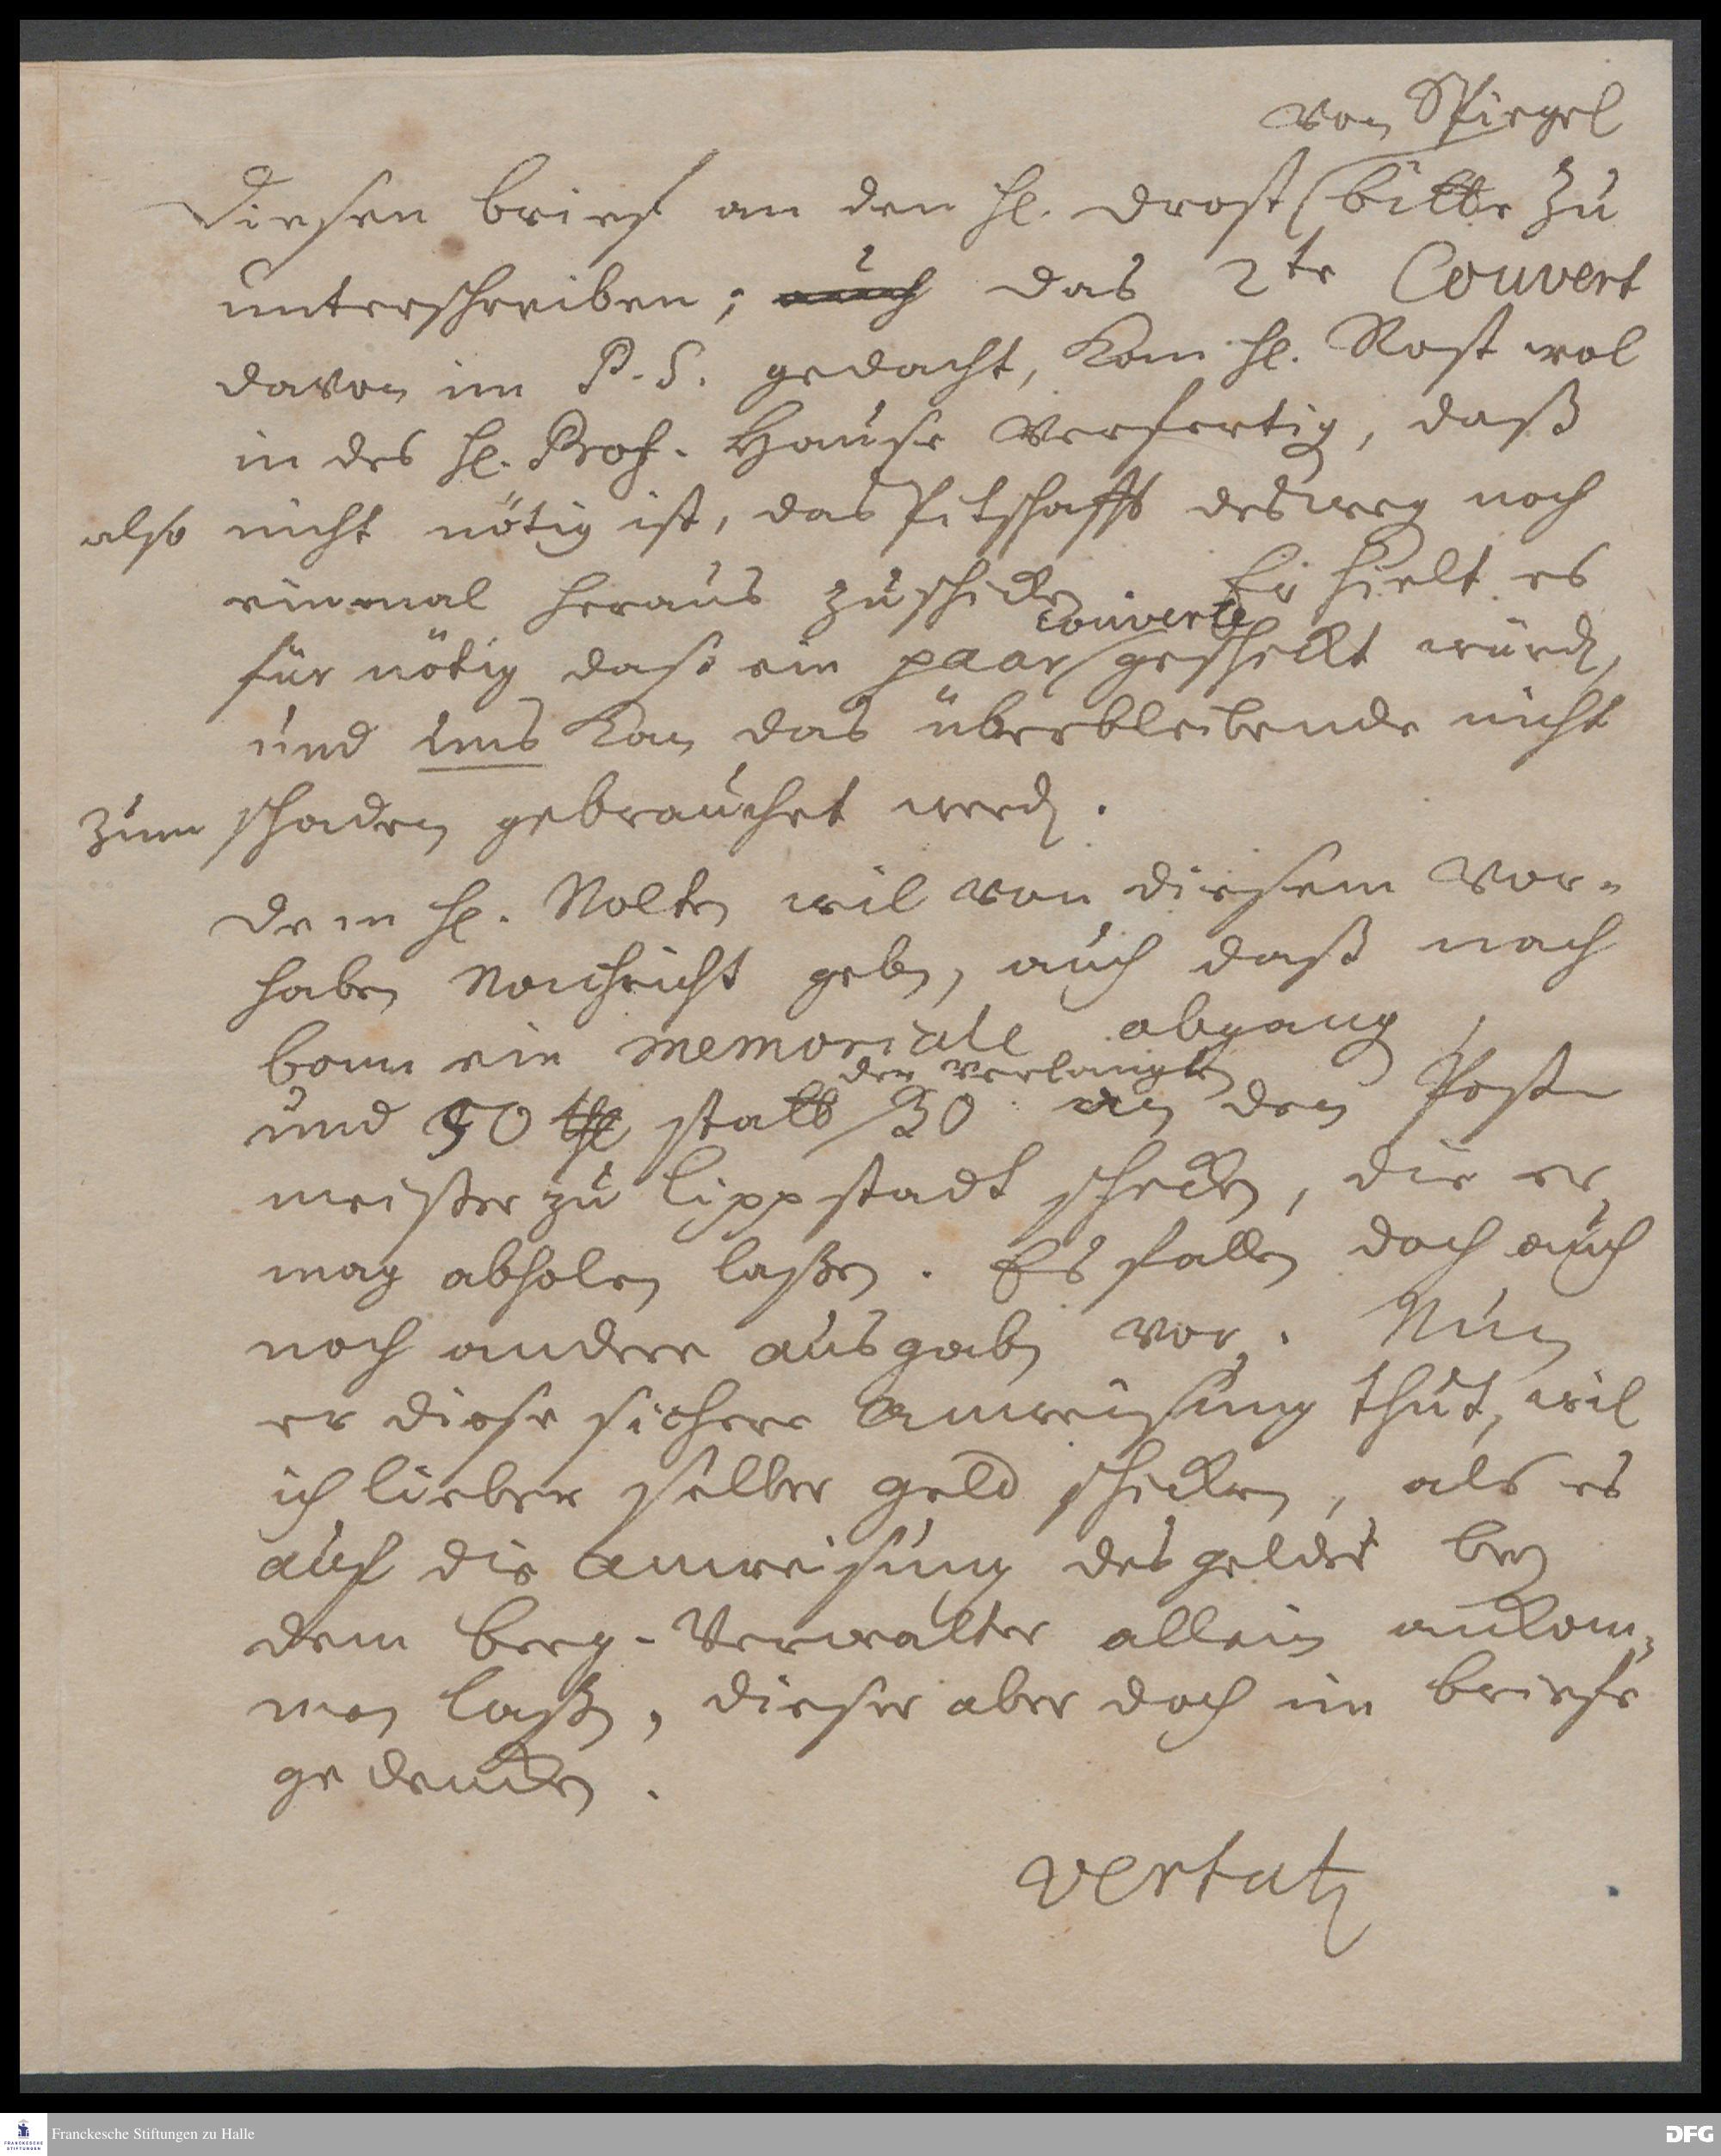 von Spiegel
Diesen brief an den H. Drost bitte zu
unterschreiben; auch das 2te Couvert
davon im P.S. gedacht, kan H. Rost wol
in des H. Prof. Hause verfertig, daß
also nicht nötig ist, das Pitschafft desweg noch
einmal heraus zuschicken. Er hielt es
couverte
für nötig daß ein paar geschickt würd,
und uns kan das überbleibende nicht
zum schaden gebrauchet werd.
dem H. Nolten wil von diesem Vor-
haben Nachricht geben, auch daß nach
bonn ein memoriale abgang,
der verlangten
und 50 thl statt 30 an den Post
meister zu Lippstadt schicken, die er
mag abholen laßen. Es fallen doch auch
noch andere ausgaben vor. Nun
er diese sichere Anweisung thut, wil
ich lieber selber geld schicken, als es
auf die anweisung des geldes bey
dem Berg-Verwalter allein ankom-
men laßen, dieser aber doch im briefe
gedencken.
vertatz
Franckesche Stiftungen zu Halle
FRANCKESCHE
STIFTUNGEN
DFG